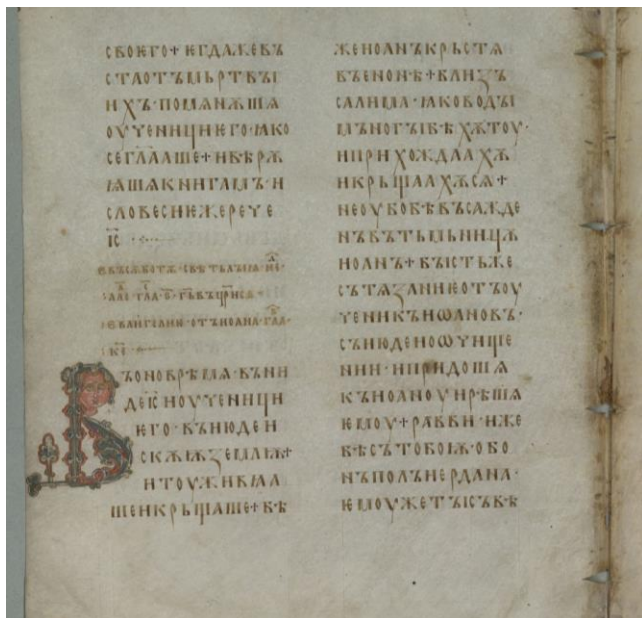 своѥго+ѥгдажевъ
сталотъмьртвъі
ихъ·помѧнѫшѧ
оученициѥго·ꙗко
сегл҃ааше+ивѣрѫ
ꙗшѧкнигамъ·и
словесиѥжерече
іс҃
въсѫботѫ·свѣтълъіѩ·не·
ѥвангелиѥ·отъиоана·гла·
Въоноврѣмѧ·въни
деіс҃иоученици
ѥго·въиюдеи
скѫѭземлѭ+
итоуживѩа
шеикрьщаше+бѣ
жеиоанъкрьстѧ
въенонѣ+близъ
салима·ꙗководъі
мъногъібѣхѫтоу·
иприхождаахѫ
икрьщаахѫсѧ+
неоубобѣвъсажде
нъвътьмьницѫ
иоанъ+бъістьже
сътѧзаниѥотъоу
ченикъиѡановъ·
съиюдеиоѡчище
нии·ипридошѧ
къиоаноуирѣшѧ
ѥмоу+равви·иже
бѣсътобоѭ·обо
нъполъиердана·
ѥмоужетъісъвѣ